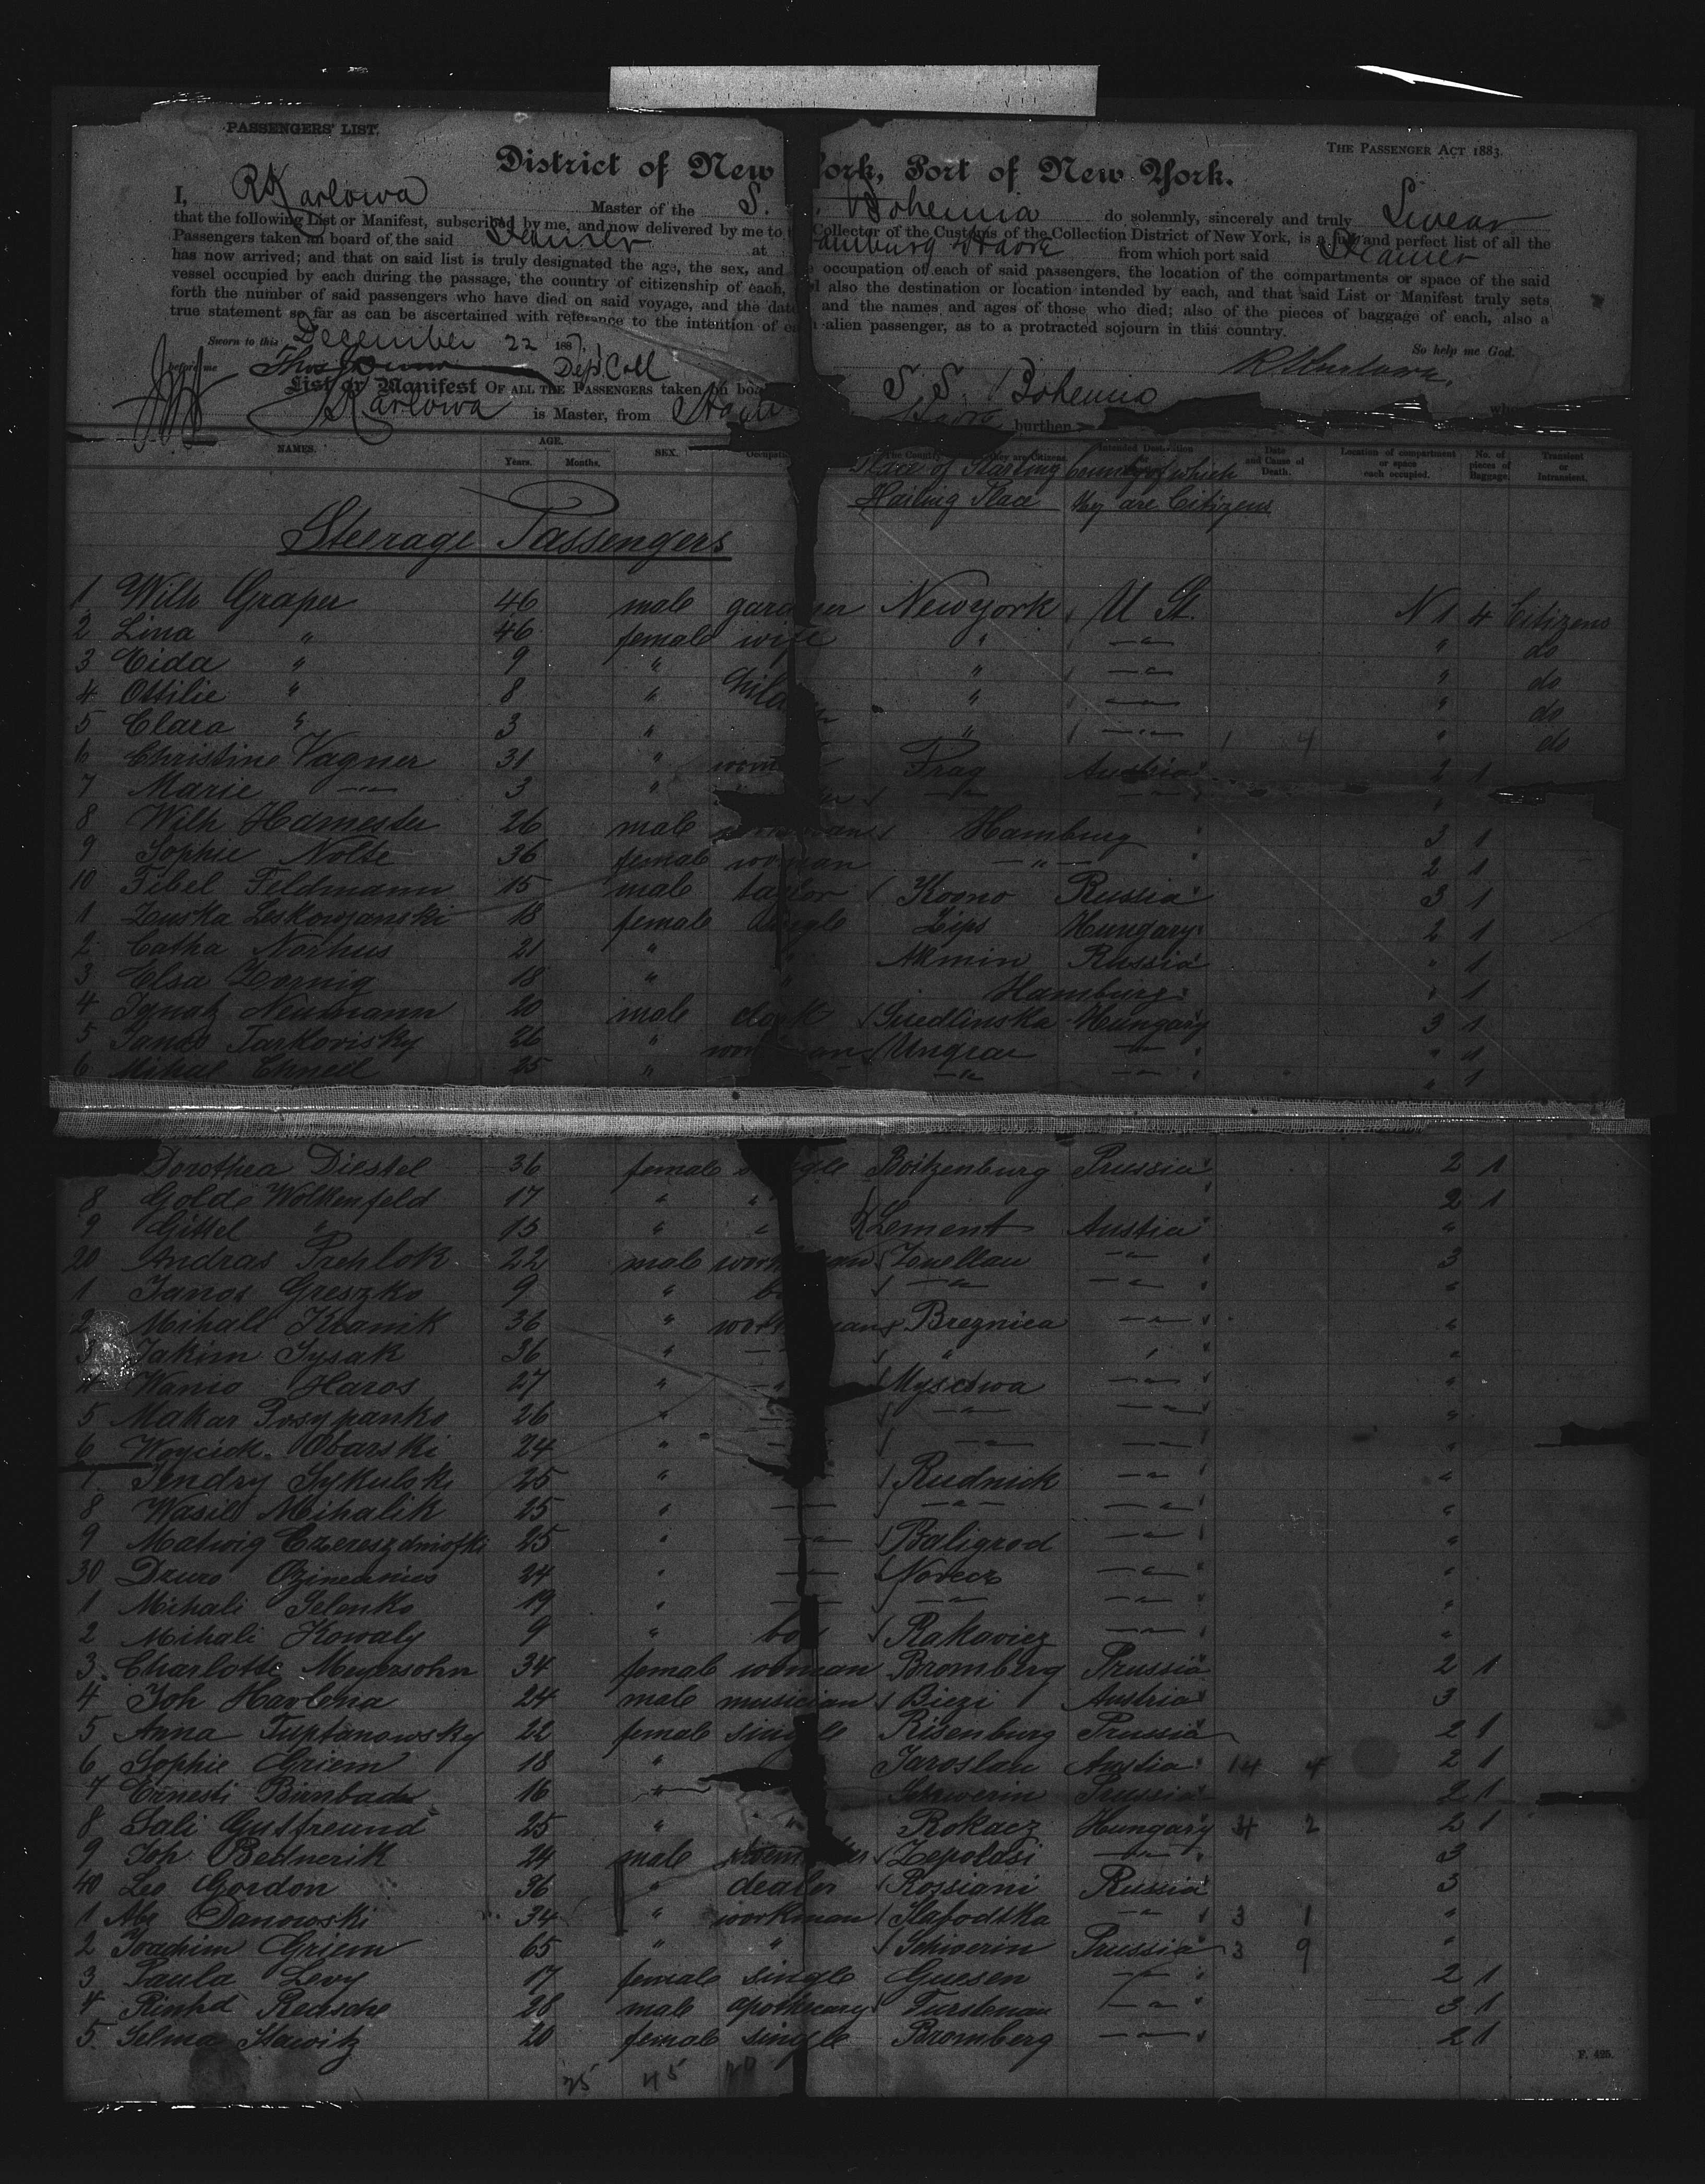 PASSENGERS' LIST.
THE PASSENGER ACT 1883.
District of New York, Port of New York.
I, R Karlowa Master of the S. Bohemia do solemnly, sincerely and truly Swear
that the following List or Manifest, subscribed by me, and now delivered by me to Collector of the Customs of the Collection District of New York, is a full and perfect list of all the
Passengers taken on board of the said Steamer at Hamburg Havre from which port said Steamer
has now arrived; and that on said list is truly designated the age, the sex, and occupation of each of said passengers, the location of the compartments or space of the said
vessel occupied by each during the passage, the country of citizenship of each, also the destination or location intended by each, and that said List or Manifest truly sets
forth the number of said passengers who have died on said voyage, and the date and the names and ages of those who died; also of the pieces of baggage of each, also a
true statement so far as can be ascertained with reference to the intention of each alien passenger, as to a protracted sojourn in this country.
Sworn to this December 22 1887
So help me God.
before me Thos Dunn Dep. Coll R Karlowa.
List or Manifest OF ALL THE PASSENGERS taken on board S. S. Bohemia
R Karlowa is Master, from Havre burthen
NAMES. AGE. Years. Months. SEX. Date and Cause of Death. Location of compartment or space each occupied. No. of pieces of Baggage. Transient or Intransient.
Place of Starting Country of which
Hailing Place they are Citizens
Steerage Passengers
1 Wilh Graper 46 male gardner Newyork U St. N 1 4 Citizens
2 Lina " 46 female wife " " " do
3 Eida " 9 " " " " do
4 Ottilie " 8 " " " " do
5 Clara " 3 " " " 1 4 " do
6 Christine Vagner 31 " Prag Austria 2 1
7 Marie " 3 " " " "
8 Wilh Hdmester 26 male Hamburg 3 1
9 Sophie Nolte 36 female woman " 2 1
10 Fibel Feldmann 15 male taylor Kovno Russia 3 1
1 Zuska Leskowjanski 18 female single Zips Hungary 2 1
2 Catha Norhus 21 " " Akmin Russia " 1
3 Elsa Zornig 18 " " Hamburg " 1
4 Ignatz Neumann 20 male clerk Suedlinska Hungary 3 1
5 Janos Tarkovisky 26 " workman Ungrar " " 1
6 Mihal Chned 25 " " " " 1
Dorothea Diestel 36 female single Boitzenburg Prussia 2 1
8 Golde Wolkenfeld 17 " " 2 1
9 Gittel " 15 " " Lement Austia "
20 Andras Prehlok 22 male workman Zuellau " 3
1 Janos Greszko 9 " boy " " "
2 Mihali Kranik 36 " workman Breznica " "
3 Jakim Sysak 36 " " " " "
4 Wanio Haros 27 " " Myscowa " "
5 Makar Posypanko 26 " " " " "
6 Woycick Obarski 24 " " " " "
7 Jendry Sykulski 25 " " Rudnick " "
8 Wasil Mihalik 25 " " " " "
9 Matwig Czereszdniofki 25 " " Baligrod " "
30 Dzuro 24 " " Novecz " "
1 Mihali Selenko 19 " " " " "
2 Mihali Kowaly 9 " boy Rakaviez " "
3 Charlotte Meyersohn 34 female woman Bromberg Prussia 2 1
4 Joh Havlena 24 male musician Biezi Austria 3
5 Anna Tuptanowsky 22 female single Risenburg Prussia 2 1
6 Sophie Griem 18 " Jaroslau Austia 14 4 2 1
7 Ernesti Birnbach 16 " Schwerin Prussia 2 1
8 Sali Gutfreund 25 " " Rokacz Hungary 34 2 2 1
9 Joh Bednerik 24 male Zepoldsi " 3
40 Leo Gordon 36 " dealer Rossiani Russia 3
1 Abr Danowski 34 " workman Slabodtka " 3 1 "
2 Joachim Griem 65 " " Schwerin Prussia 3 9 "
3 Paula Levy 17 female single Gnesen " 2 1
4 Rinhd Redsche 28 male apothecary Furstenau " 3 1
5 Selma Hawitz 20 female single Bromberg " 2 1
F. 425.
25 45 20